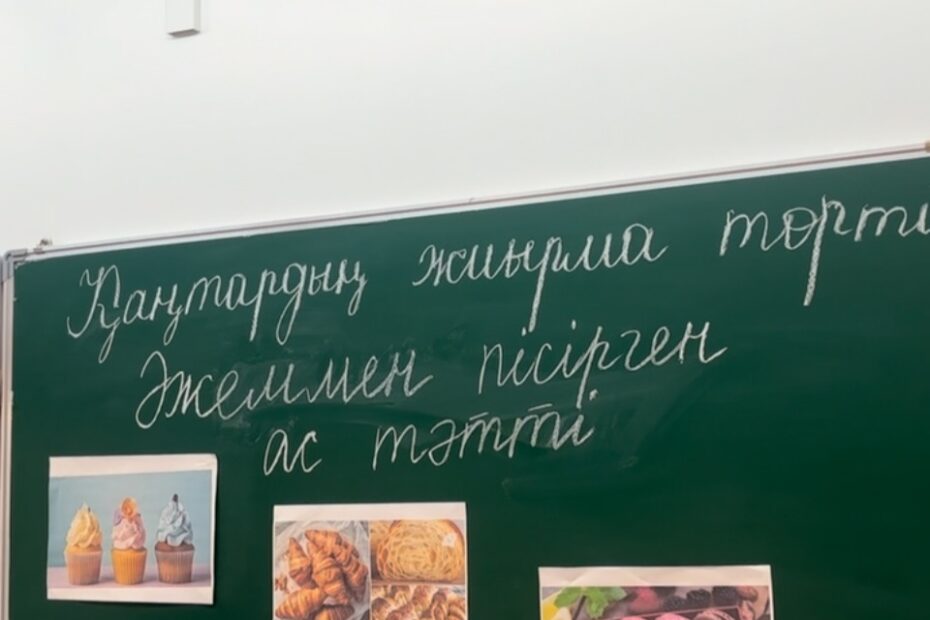 Қаңтардың жиырма төрті
Әжеммен пісірген
ас тәтті